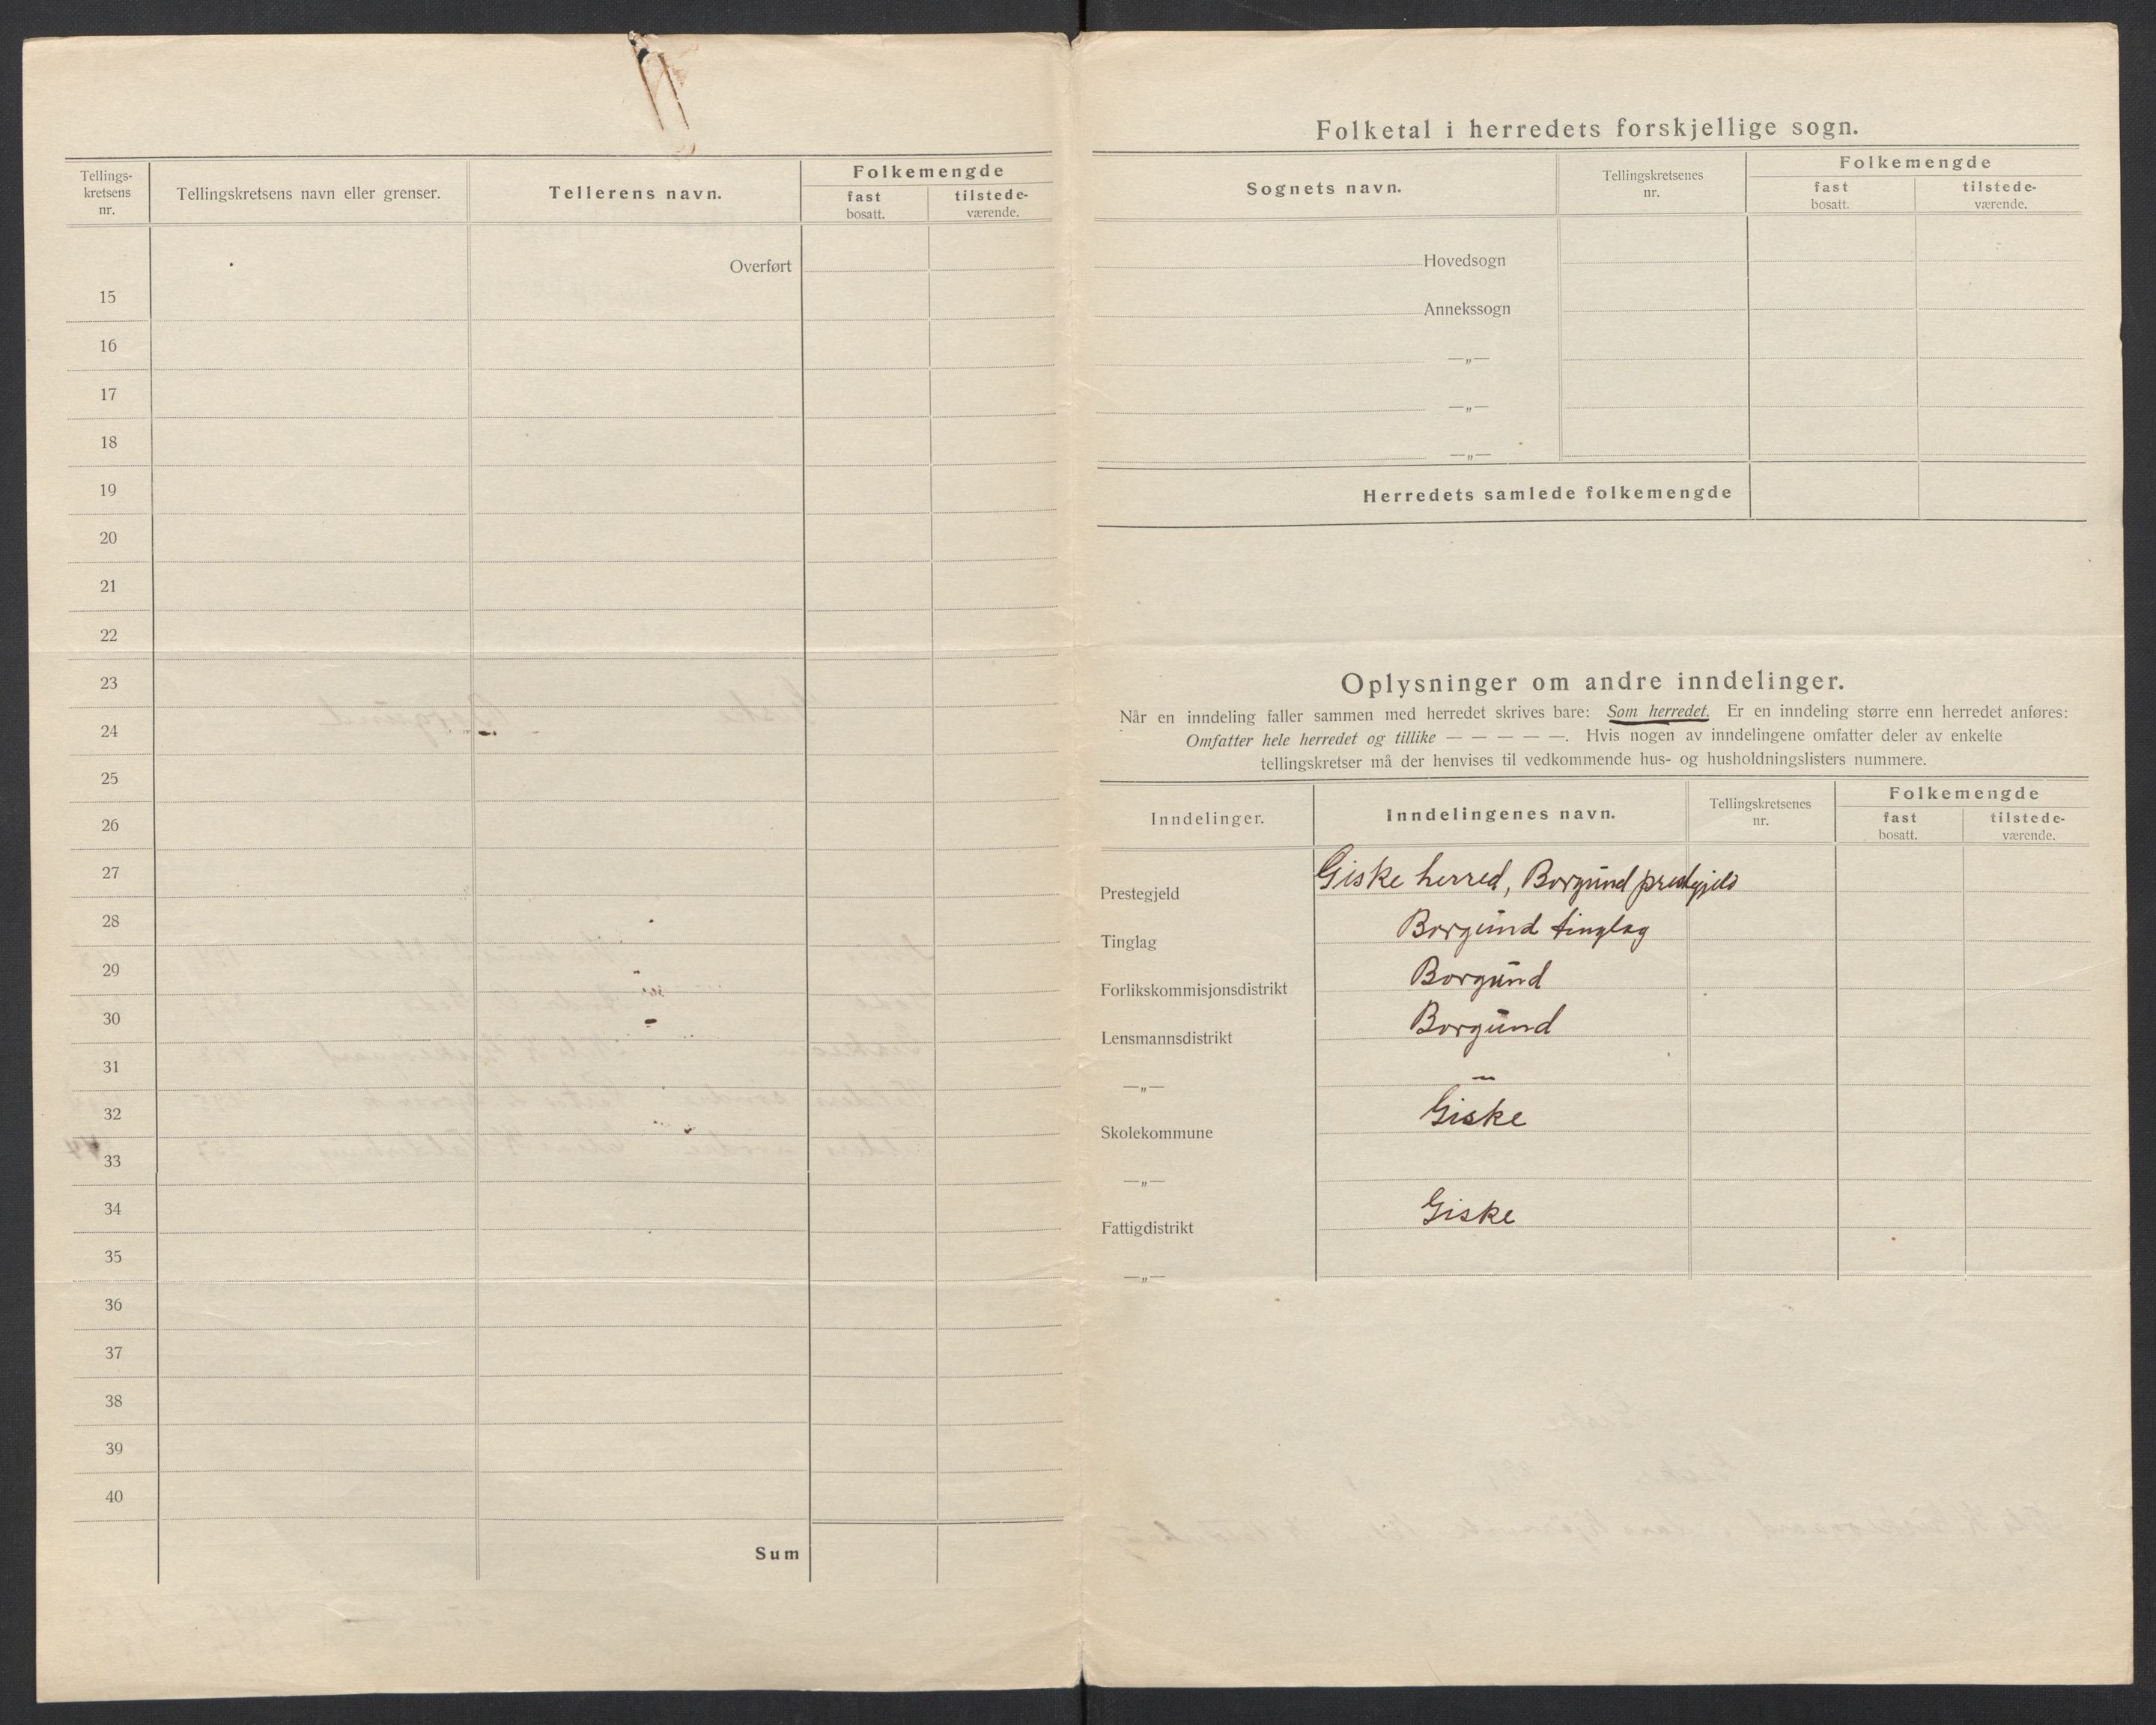 Tellings-
kretsens
nr.
Tellingskretsens navn eller grenser.
Tellerens navn.
Folkemengde
fast
bosatt.
tilstede-
værende.
Overført
15
16
17
18
19
20
21
22
23
24
25
26
27
28
29
30
31
32
33
34
35
36
37
38
39
40
Sum
Folketal i herredets forskjellige sogn.
Sognets navn.
Tellingskretsenes
nr.
Folkemengde
fast
bosatt.
tilstede-
værende.
Hovedsogn
Annekssogn
—„—
—„—
—„—
Herredets samlede folkemengde
Oplysninger om andre inndelinger.
Når en inndeling faller sammen med herredet skrives bare: Som herredet. Er en inndeling større enn herredet anføres:
Omfatter hele herredet og tillike — — — — —. Hvis nogen av inndelingene omfatter deler av enkelte
tellingskretser må der henvises til vedkommende hus- og husholdningslisters nummere.
Inndelinger.
Inndelingenes navn.
Tellingskretsenes
nr.
Folkemengde
fast
bosatt.
tilstede-
værende.
Prestegjeld Giske herred, Borgund prestegjeld
Tinglag Borgund tinglag
Forlikskommisjonsdistrikt Borgund
Lensmannsdistrikt Borgund
—„—
Skolekommune Giske
—„—
Fattigdistrikt Giske
—„—